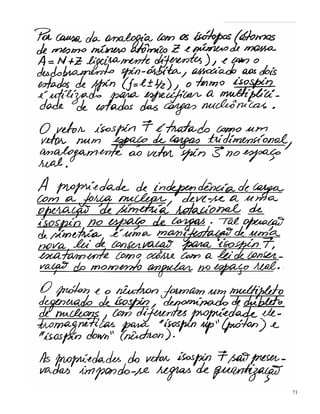 Por causa da analogia com os isótopos (átomos
de mesmo número atômico Z e número de massa
A = N+Z ligeiramente diferentes), e com o
desdobramento spin-órbita, associado aos dois
estados de spin (j=l±½), o termo isospin
é utilizado para especificar a multiplici-
dade de estados das cargas nucleônicas.
O vetor isospin T é tratado como um
vetor num espaço de cargas tridimensional,
analogamente ao vetor spin S no espaço
real.
A propriedade de independência de carga
com a força nuclear, deve-se a uma
operação de simetria rotacional de
isospin no espaço de cargas. Tal operação
de simetria é uma manifestação de uma
nova lei de conservação para isospin T,
exatamente como ocorre com a lei de conser-
vação do momento angular no espaço real.
O próton e o nêutron formam um multipleto
degenerado de isospin, denominado de dubleto
de nucleons, com diferentes propriedade ele-
tromagnéticas para "isospin up" (próton) e
"isospin down" (nêutron).
As propriedades do vetor isospin T são preser-
vadas impondo-se regras de quantização
71